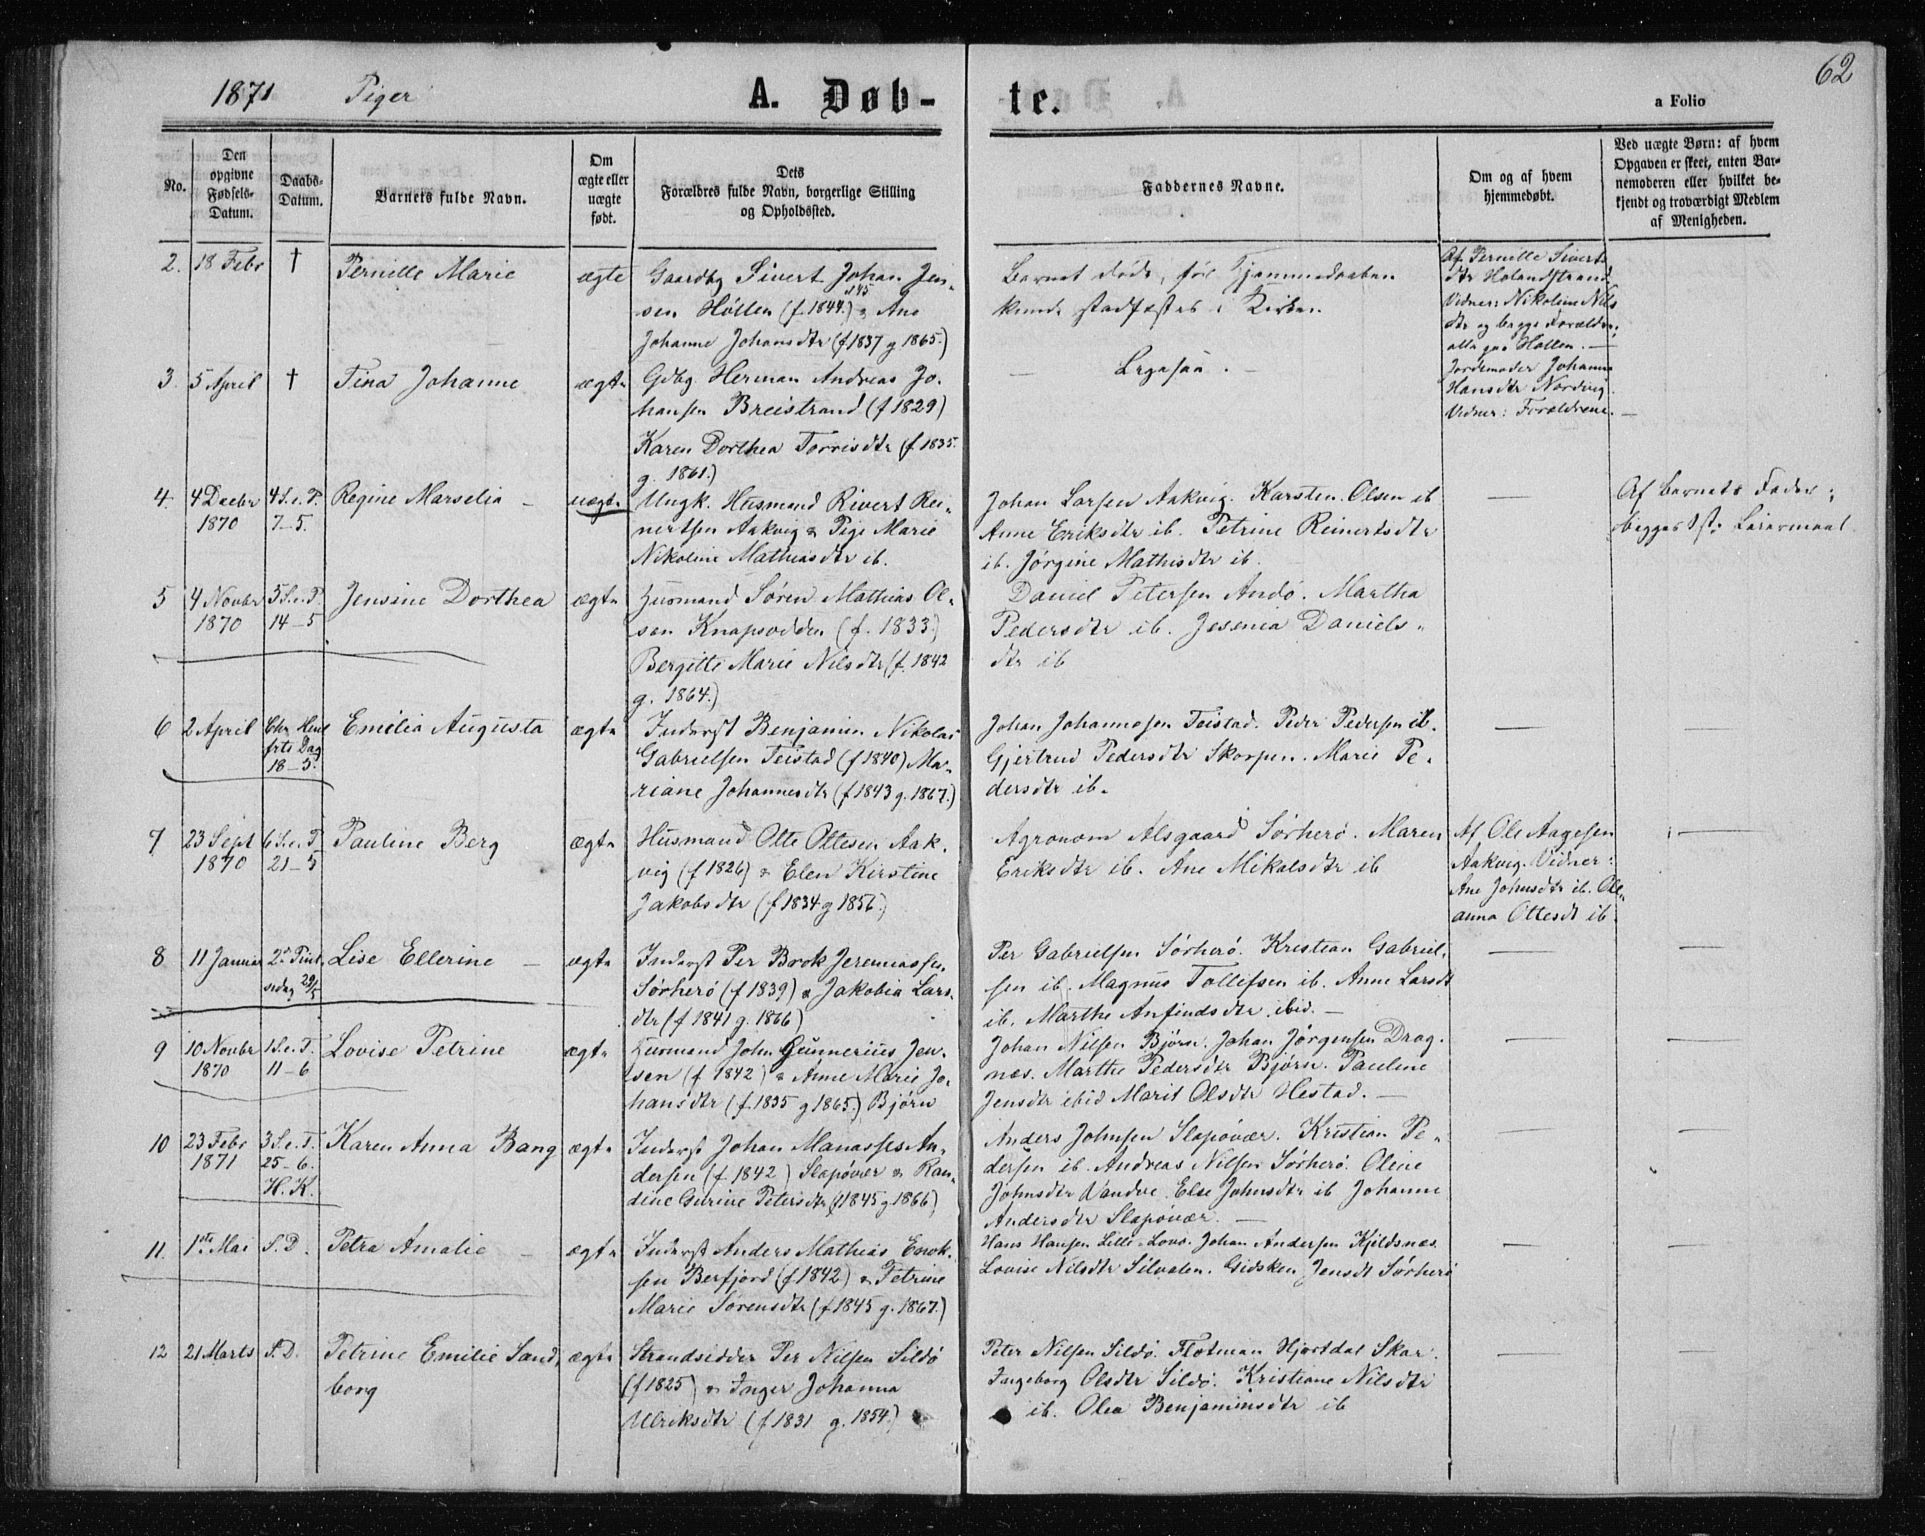 1871 Piger A. Døb- te. a Folio 62
No.
Den opgivne Fødsels-Datum.
Daabs-Datum.
Barnets fulde Navn.
Om ægte eller uægte født.
Dets Forældres fulde Navn, borgerlige Stilling og Opholdssted.
Faddernes Navne.
Om og af hvem hjemmedøbt.
Ved uægte Børn: af hvem Opgaven er skeet, enten Barnemoderen eller hvilket bekjendt og troværdigt Medlem af Menigheden.
2. 18 Febr † Pernille Marie ægte
Gaardbg Sivert Johan Jen-
sen Hollen (f. 1844.) & Ane
Johanne Johansdtr (f 1837 g 1865.)
Barnet døde, før Hjemmedaaben
kunde stadfæstes i Kirken
Af Pernille Siverts
dtr Holandstrand
Vidner: Nikoline Nils
dtr og begge Forældre,
alle paa Hollen. —
3. 5 April † Tina Johanne ægte
Gdbg. Herman Andreas Jo-
hansen Breistrand (f 1829)
Karen Dorthea Torrisdtr (f 1835.
g. 1861.)
— Ligesaa. —
Jordemoder Johanna
Hansdtr Nordvig
Vidner: Forældrene. —
4. 4 Decbr 1870 4 S. e. P. 7–5. Regine Marselia — uægte
Ungk. Husmand Rivert Rei-
nertsen Aakvig & Pige Marie
Nikoline Mathiasdtr ib.
Johan Larsen Aakvig. Karsten Olsen ib
Anne Eriksdtr ib. Petrine Reinertsdtr
ib. Jørgine Mathisdtr ib.
—
Af Barnets Fader;
begges 1ste Leiermaal
5 4 Novbr 1870 5 S. e. P. 14–5 Jensine Dorthea ægte
Husmand Søren Mathias Ol-
sen Knapsodden (f. 1833.)
Bergitte Marie Nilsdtr (f. 1842
g. 1864.)
Daniel Petersen Andø. Martha
Pedersdtr ib. Jesenia Daniels-
dtr ib
6 2 April Chr. Himl frts Dag 18–5. Emilia Augusta ægte
Inderst Benjamin Nikolai
Gabrielsen Teistad (f 1840) Ma-
riane Johannesdtr (f 1843 g. 1867.)
Johan Johannesen Teistad. Peder Pedersen ib.
Gjertrud Pedersdtr Skorpen. Marie Pe-
dersdtr ib.
— —
7 23 Sept 1870 6 S. e. P. 21–5 Pauline Berg ægte
Husmand Otte Ottesen Aak-
vig (f 1826) & Elen Kirstine
Jakobsdtr (f 1834 g 1856.)
Agronom Alsgaard Sørherø. Maren
Eriksdtr ib. Ane Mikalsdtr ib
Af Ole Aagesen
Aakvig. Vidner:
Ane Johnsdtr ib. Ole-
anna Ottesdt ib.
—
8 11 Januar 2den Pint sedag 29/5 Lise Ellerine — ægte
Inderst Per Brok Jeremiassen
Sørherø (f 1839) & Jakobia Lars-
dtr (f 1841 g. 1866)
Per Gabrielsen Sørherø. Kristian Gabriel-
sen ib. Magnus Tollefsen ib. Anne Larsdt
ib. Marthe Anfindsdtr ibid. —
— —
9 10 Novbr 1870 1 S. e. T. 11–6 Lovise Petrine ægte
Husmand John Gunnerius Jen-
sen (f 1842) & Anne Marie Jo-
hansdtr (f. 1835 g 1865.) Bjørn
Johan Nilsen Bjørn. Johan Jørgensen Drag-
nes. Marthe Pedersdtr Bjørn. Pauline
Jensdtr ibid Marit Olsdtr Hestad. —
— —
10 23 Febr 1871 3 S. e. T. 25–6. H. K. Karen Anna Bang ægte
Inderst Johan Manasses An-
dersen (f 1842) Slapøvær & Ran-
dine Gurine Petersdtr (f 1845 g 1866)
Anders Johnsen Slapøvær. Kristian Pe-
dersen ib. Andreas Nilsen Sørherø. Oline
Johnsdtr Vandve. Else Johnsdtr ib Johanne
Andersdtr Slapøvær. —
— —
11. 1ste Mai S. D. Petra Amalie — ægte
Inderst Anders Mathias Enok-
sen Berfjord (f 1842) & Petrine
Marie Sørensdtr (f 1845 g. 1867.)
Hans Hansen Lille-Lovø. Johan Andersen Kjeldsnes
Lovise Nilsdtr Silvalen. Gidsken Jensdt Sørherø
— —
12 21 Marts S. D. Petrine Emilie Sand- ægte
borg
Strandsidder Per Nilsen Sildø
(f 1825) & Inger Johanna
Ulriksdtr (f 1831 g. 1854.)
Peter Nilsen Sildø. Flotman Hjortdal Skar.
Ingeborg Olsdtr Sildø. Kristiane Nilsdtr
ib. Olea Benjaminsdtr ib
— —